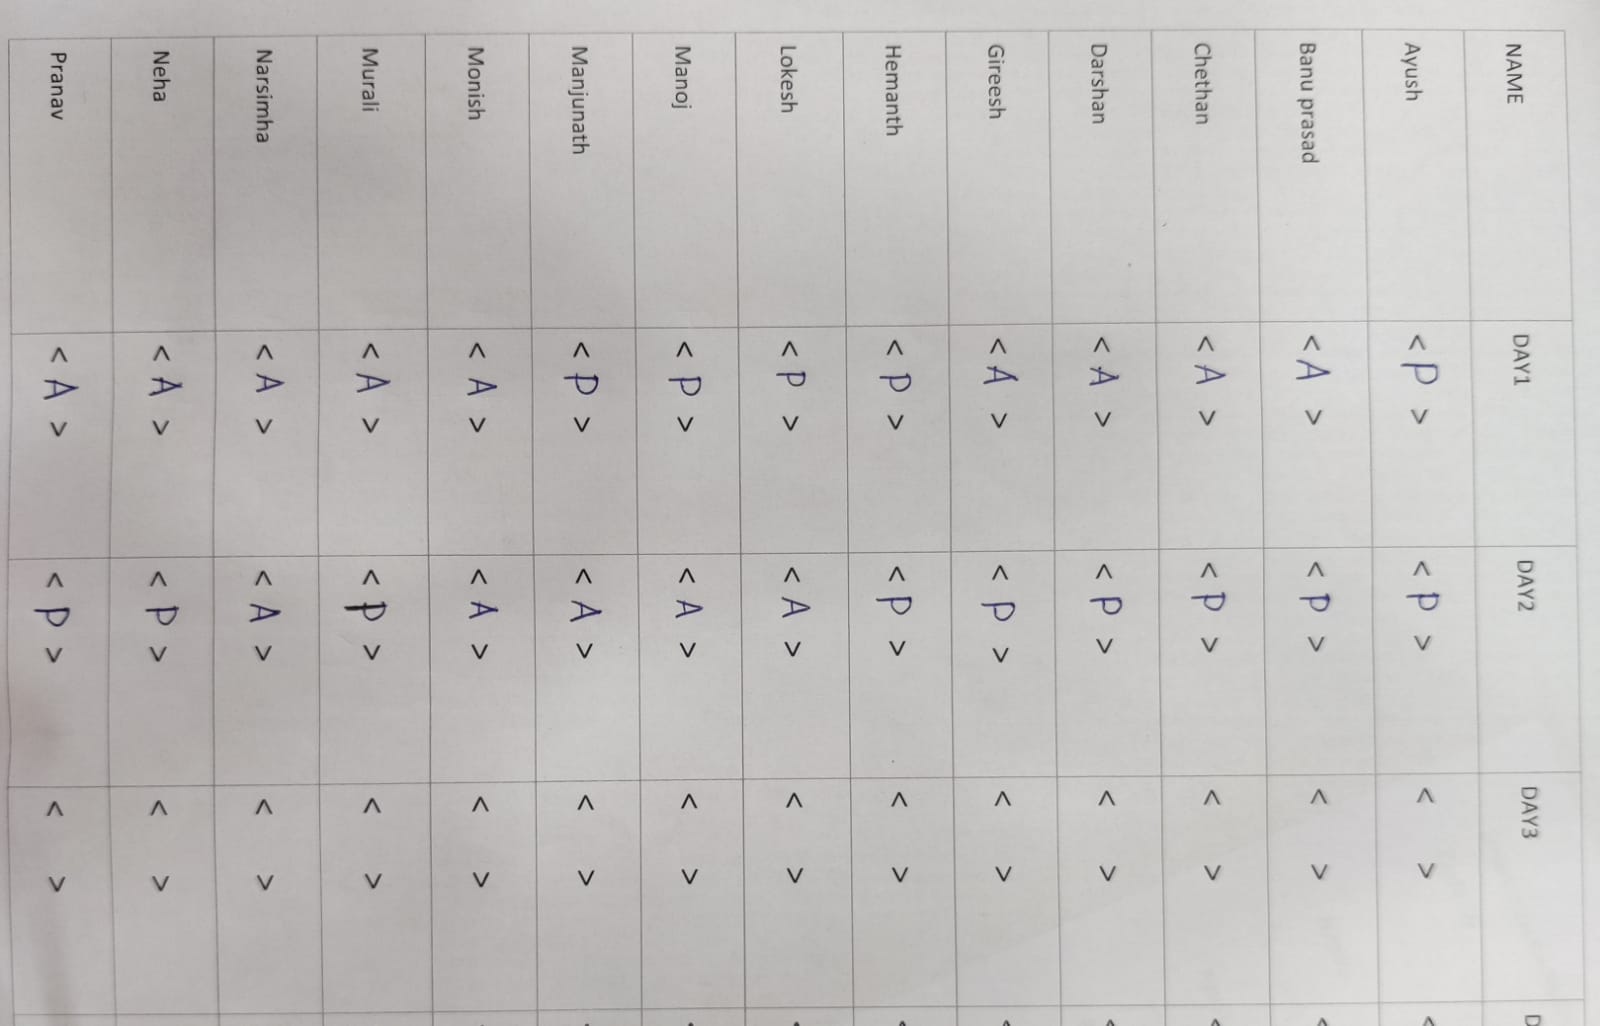 NAME DAY1 DAY2 DAY3 D
Ayush < P > < P > < >
Banu prasad < A > < P > < >
Chethan < A > < P > < >
Darshan < A > < P > < >
Gireesh < A > < P > < >
Hemanth < P > < P > < >
Lokesh < P > < A > < >
Manoj < P > < A > < >
Manjunath < P > < A > < >
Monish < A > < A > < >
Murali < A > < P > < >
Narsimha < A > < A > < >
Neha < A > < P > < >
Pranav < A > < P > < >